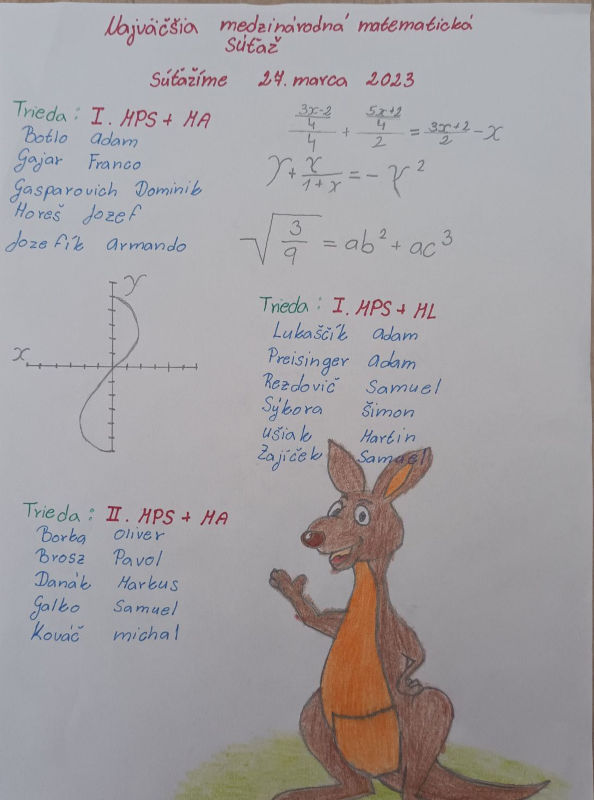 Najväčšia medzinárodná matematická
súťaž
Súťažíme 24. marca 2023
Trieda: I. MPS + MA
Botlo Adam
Gajar Franco
Gasparovich Dominik
Horeš Jozef
Jozefík Armando
(3x-2/4)/4 + (5x+2/4)/2 = 3x+2/2 - x
y + x/1+x = - x²
√3/9 = ab² + ac³
y
x
Trieda: I. MPS + ML
Lukaščík Adam
Preisinger Adam
Rezdovič Samuel
Sýkora Šimon
Ušiak Martin
Zajíček Samuel
Trieda: II. MPS + MA
Borba Oliver
Brosz Pavol
Danák Markus
Galko Samuel
Kováč Michal